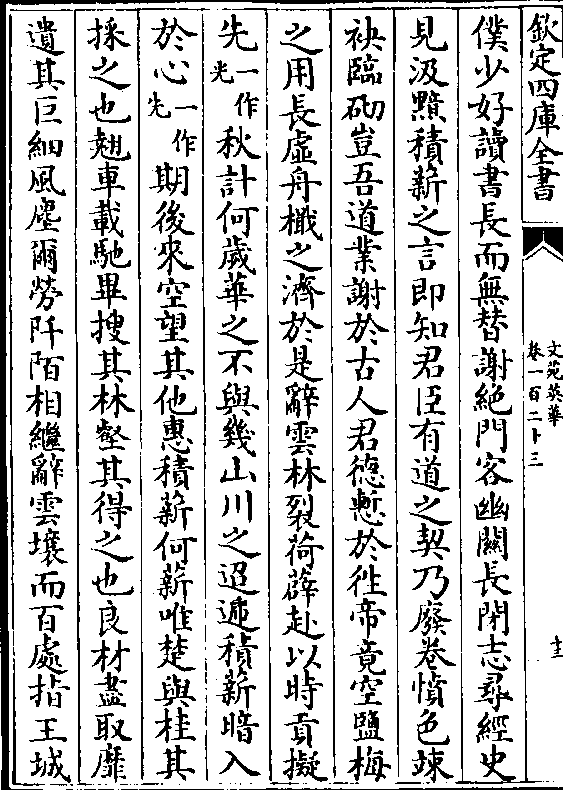 欽定四庫全書
文苑英華
卷一百二十三
十三
僕少好讀書長而無替謝絶門客幽關長閉志尋經史
見汲黯積薪之言即知君臣有道之契乃廢卷憤色竦
袂臨砌豈吾道業謝於古人君德慙於徃帝竟空鹽梅
之用長虛舟檝之濟於是辭雲林裂荷薜赴以時貢擬
先一作光秋計何歲華之不與幾山川之迢遞積薪暗入
於心一作先期後來空望其他惠積薪何薪唯楚與桂其
採之也翹車載馳畢搜其林壑其得之也良材盡取靡
遺其巨細風塵爾勞阡陌相繼辭雲壤而百處指王城